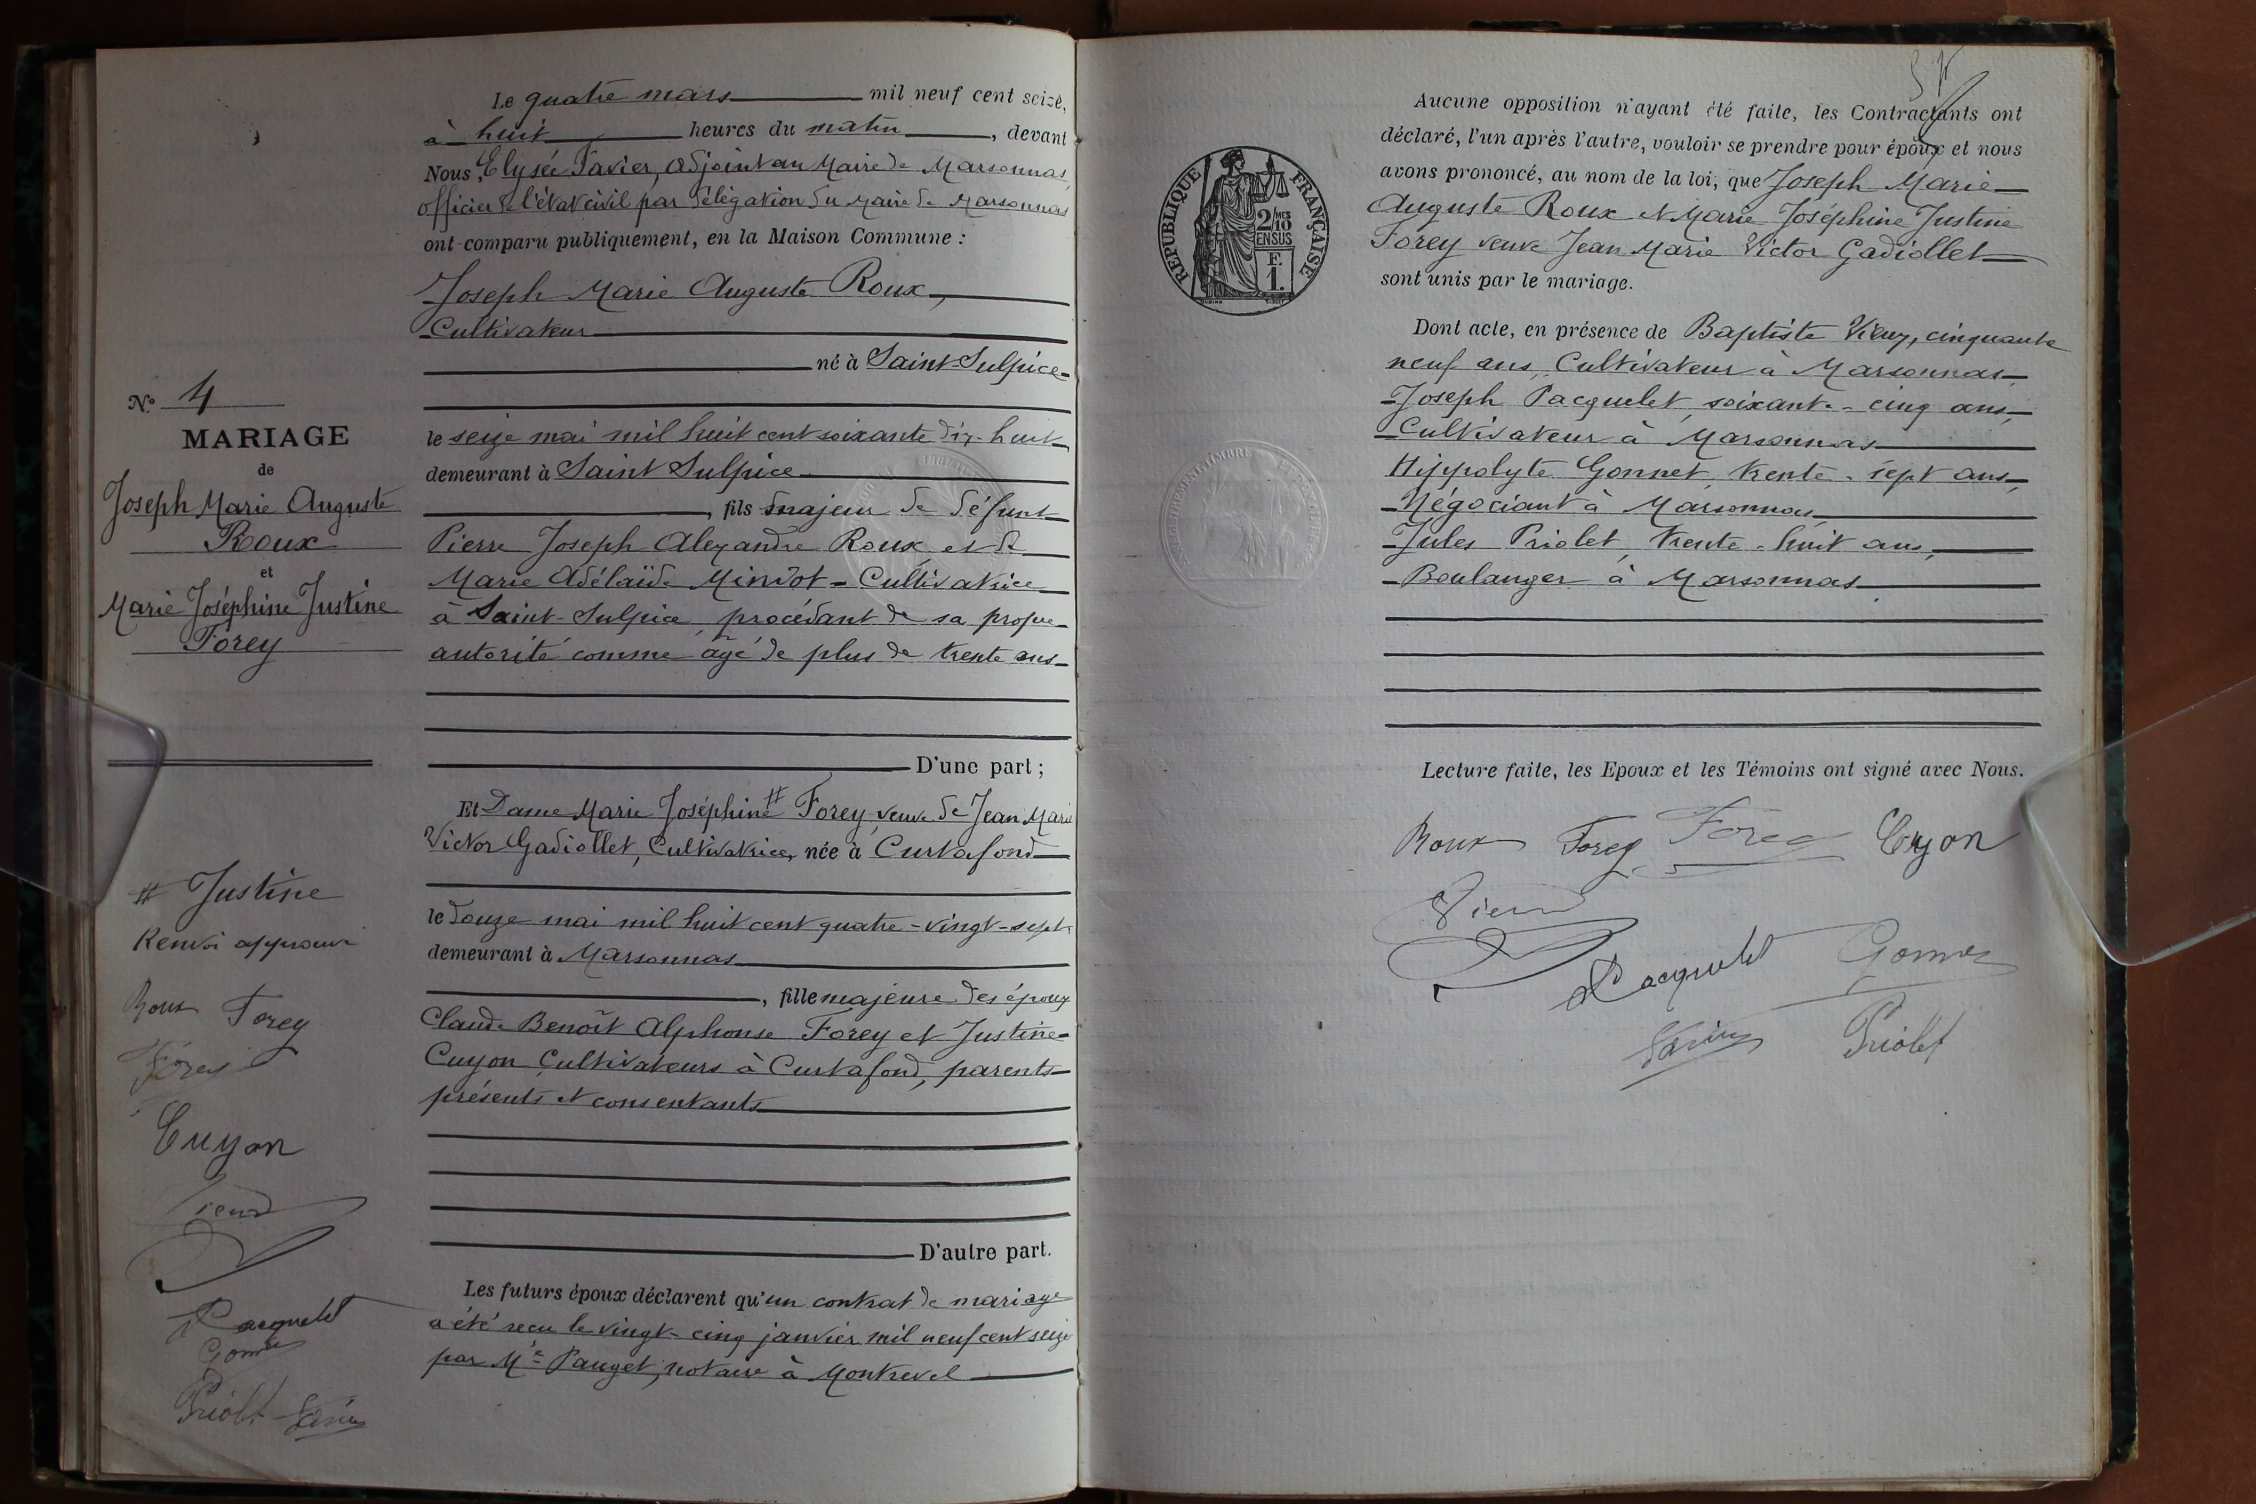 Le quatre mars mil neuf cent seize,
à huit heures du matin, devant
Nous, Elysée Favier, adjoint au Maire de Marsonnas,
officier de l'état civil par délégation du Maire de Marsonnas
ont comparu publiquement, en la Maison Commune :
Joseph Marie Auguste Roux,
Cultivateur
né à Saint-Sulpice
le seize mai mil huit cent soixante dix-huit
demeurant à Saint Sulpice
, fils majeur de défunt
Pierre Joseph Alexandre Roux et de
Marie Adélaïde Mindot - Cultivatrice
à Saint-Sulpice, procédant de sa propre
autorité comme âgé de plus de trente ans
D'une part ;
Et Dame Marie Joséphine # Forey, veuve de Jean Marie
Victor Gadiollet, Cultivatrice, née à Curtafond
le douze mai mil huit cent quatre-vingt-sept
demeurant à Marsonnas
, fille majeure des époux
Claude Benoît Alphonse Forey et Justine
Cuyon Cultivateurs à Curtafond, parents
présents et consentants
D'autre part.
Les futurs époux déclarent qu'un contrat de mariage
a été reçu le vingt-cinq janvier mil neuf cent seize
par Me Pauget, notaire à Montrevel
N° 4
MARIAGE
de
Joseph Marie Auguste
Roux
et
Marie Joséphine Justine
Forey
# Justine
Renvoi approuvé
Roux Forey
Forey
Cuyon
Vieux
Pacquelet
Gonnet
Priolet Favier
RÉPUBLIQUE FRANÇAISE
2/10 MES
EN SUS
F.
1.
Aucune opposition n'ayant été faite, les Contractants ont
déclaré, l'un après l'autre, vouloir se prendre pour époux et nous
avons prononcé, au nom de la loi, que Joseph Marie
Auguste Roux et Marie Joséphine Justine
Forey veuve Jean Marie Victor Gadiollet
sont unis par le mariage.
Dont acte, en présence de Baptiste Vieux, cinquante
neuf ans, Cultivateur à Marsonnas,
Joseph Pacquelet, soixante-cinq ans,
Cultivateur à Marsonnas
Hippolyte Gonnet, trente-sept ans,
Négociant à Marsonnas,
Jules Priolet, trente-huit ans,
Boulanger à Marsonnas
Lecture faite, les Epoux et les Témoins ont signé avec Nous.
Roux Forey Forey Cuyon
Vieux
Pacquelet Gonnet
Favier Priolet